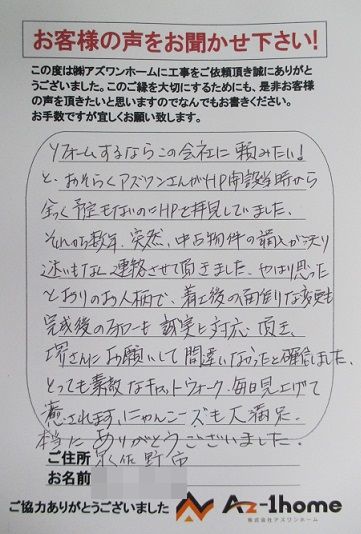 お客様の声をお聞かせ下さい!
この度は㈱アズワンホームに工事をご依頼頂き誠にありがと
うございました。このご縁を大切にするためにも、是非お客様
の声を頂きたいと思いますのでなんでもお書きください。
お手数ですが宜しくお願い致します。
リフォームするならこの会社に頼みたい!
と、おそらくアズワンさんがHP開設当時から
全く予定もないのにHPを拝見していました。
それから数年、突然、中古物件の購入が決り
迷いもなく連絡させて頂きました。やはり思った
とおりのお人柄で、着工後の面倒な変更も
完成後のフォローも誠実に対応頂き、
堺さんにお願いして間違いなかったと確信しました。
とっても素敵なキャットウォーク、毎日見上げて
癒されます。にゃんこーズも大満足。
本当にありがとうございました。
ご住所 泉佐野市
お名前
ご協力ありがとうございました Az-1home
株式会社アズワンホーム